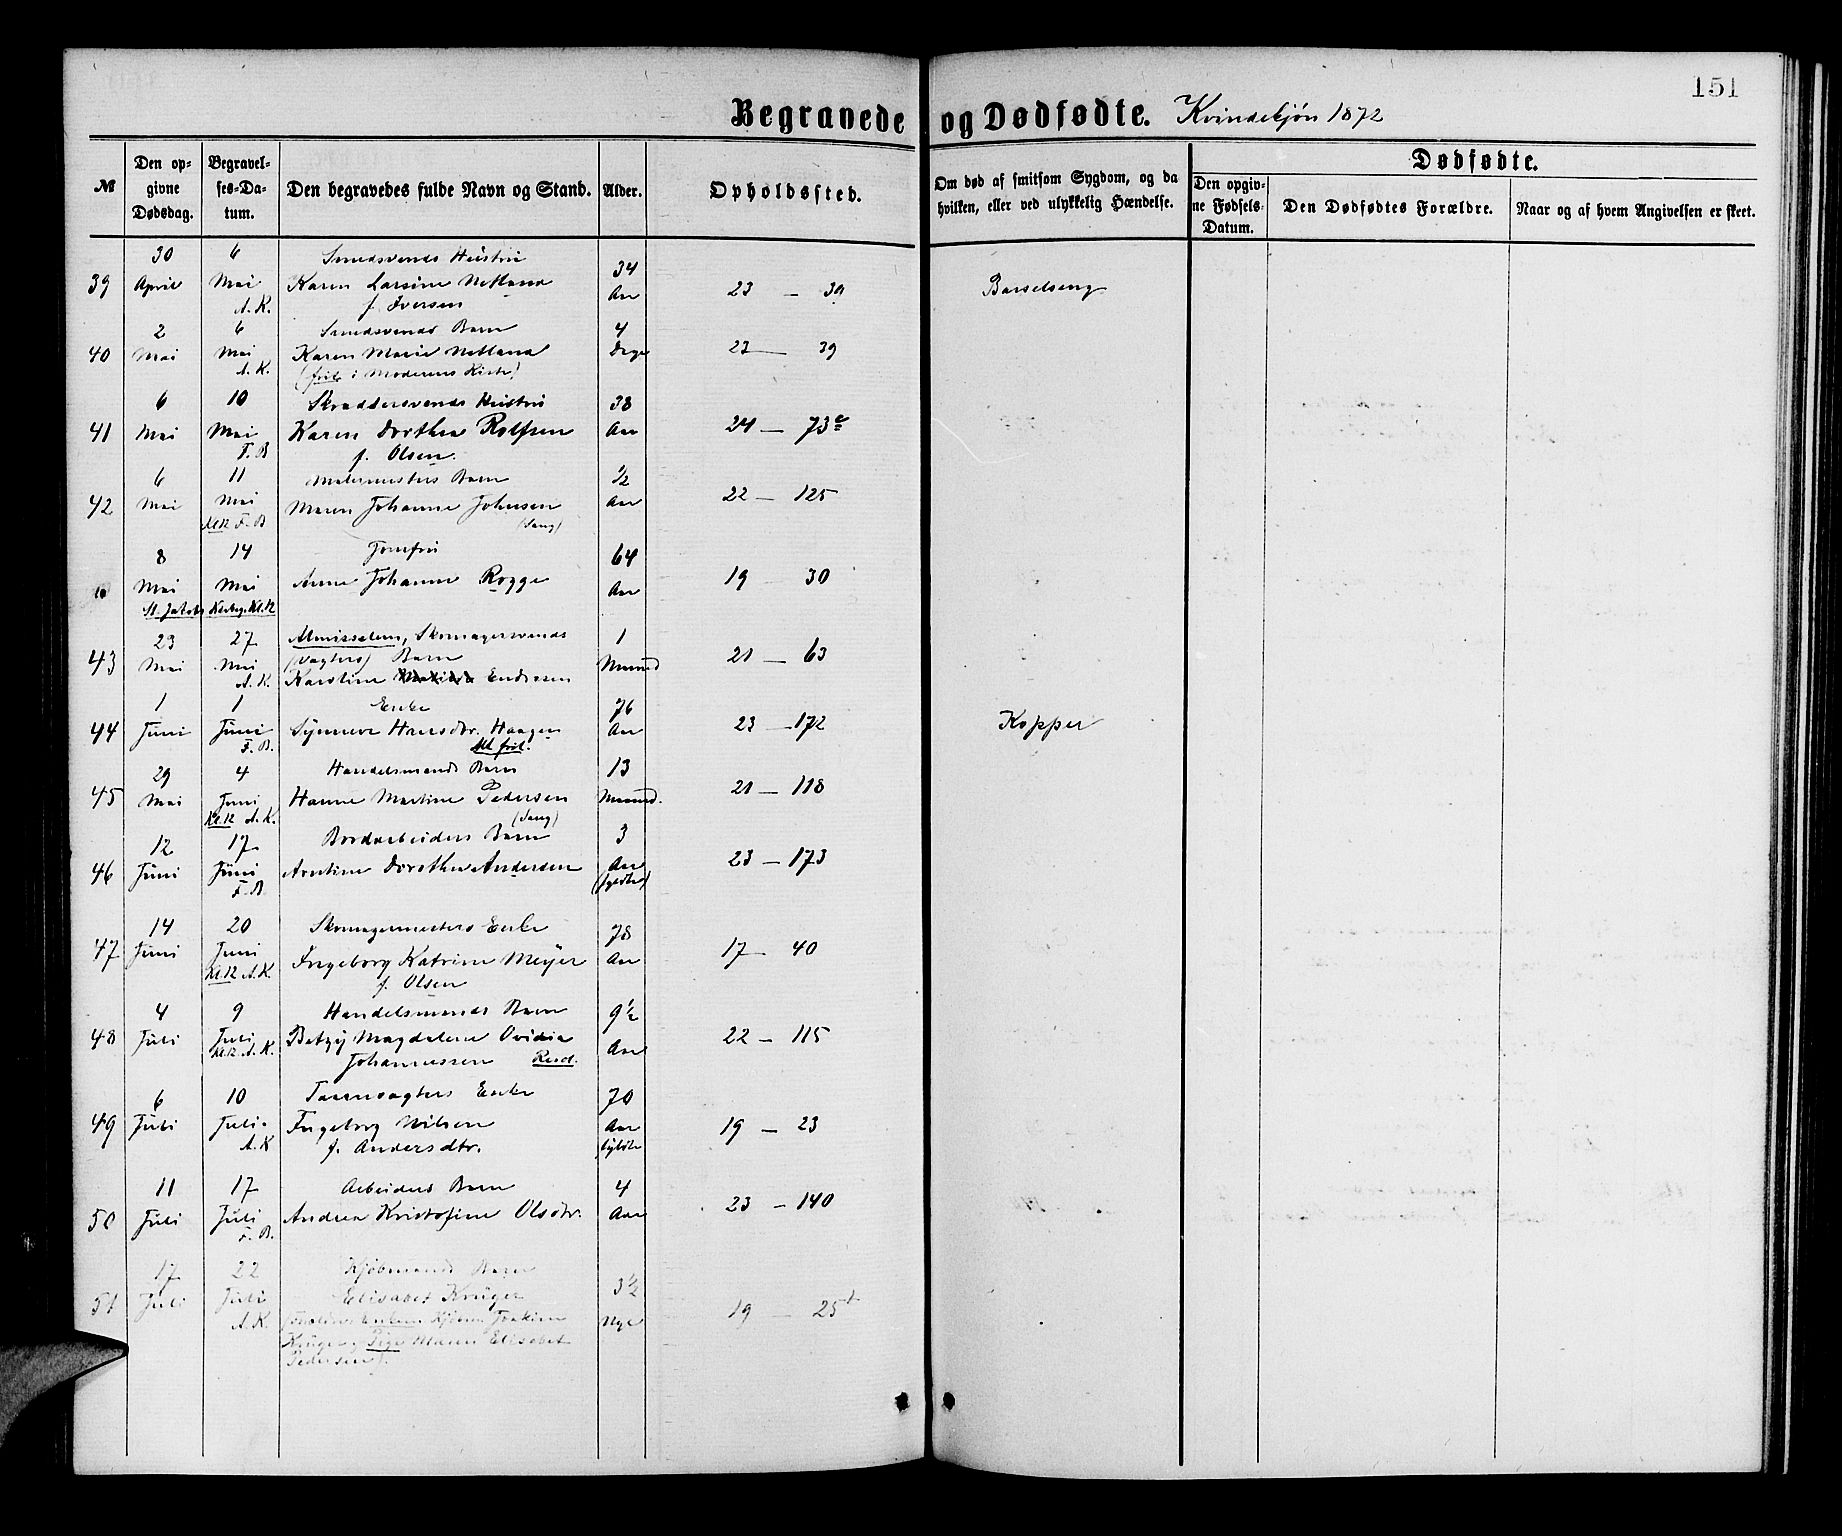 151
Begravede og Dødfødte. Kvindekjøn 1872
№
Den opgivne Dødsdag.
Begravelses-Datum.
Den begravedes fulde Navn og Stand.
Alder.
Opholdssted.
Om død af smitsom Sygdom, og da hvilken, eller ved ulykkelig Hændelse.
Dødfødte.
Den opgivne Fødsels-Datum.
Den Dødfødtes Forældre.
Naar og af hvem Angivelsen er skeet.
30 6 Smedsvends Hustru 34
39 April Mai Karen Larsine Netland Aar 23 — 39 Barselseng
A. K. f. Iversen
2 6 Smedsvends Barn 4
40 Mai Mai Karen Marie Netland Dage 23 — 39
A. K. (frit i Moderens Kiste)
6 10 Skræddersvends Hustru 38
41 Mai Mai Karen Dorthea Rolfsen Aar 24 — 73c
F. B f. Olsen.
6 11 Malermesters Barn ½
42 Mai Mai Maren Johanne Johnsen Aar 22 — 125
Kl.12 F. B (Sang)
8 14 Jomfru 64
Mai Mai Anne Johanne Rogge Aar 19 30
St. Jakobs Kirkeg. Kl.12
23 27 Almisselem, Skomagersvends 1
43 Mai Mai (Vagters) Barn Maaned 21 — 63
A. K. Karoline Endresen
1 1 Enke 76
44 Juni Juni Synneve Hansdtr. Haagen Aar 23 — 172 Kopper
F. B. frit.
29 4 Handelsmands Barn 13
45 Mai Juni Hanne Martine Pedersen Maaned. 21 — 118
Kl.12 A. K. (Sang)
12 17 Bordarbeiders Barn 3
46 Juni Juni Arntine Dorothea Andersen Aar 23 — 173
F. B. (fyldte)
14 20 Skomagermesters Enke 78
47 Juni Juni Ingeborg Katrine Meyer Aar 17 — 40
Kl.12 A. K f. Olsen
4 9 Handelsmands Barn 9½
48 Juli Juli Betzy Magdalene Ovidia Aar 22 — 115
Kl.12 A. K. Johannessen Resd.
6 10 Taarnvagters Enke 70
49 Juli Juli Ingeborg Nilsen Aar 19 — 23
A. K f. Andersdtr. fyldte
11 17 Arbeiders Barn 4
50 Juli Juli Andrea Kristofine Olsdtr. Aar 23 — 140
F. B.
17 22 Kjøbmands Barn 3½
51 Juli Juli Elisabet Krüger 19 — 25
A. K. Kjøbm. Joakim
Krüger og Pige Maren Elisabet
Pedersen).